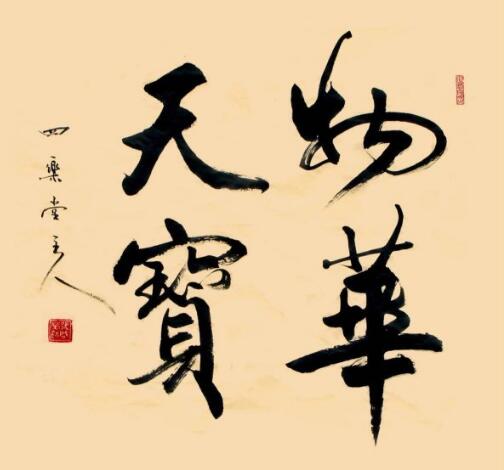 物華
天寶
四樂堂主人